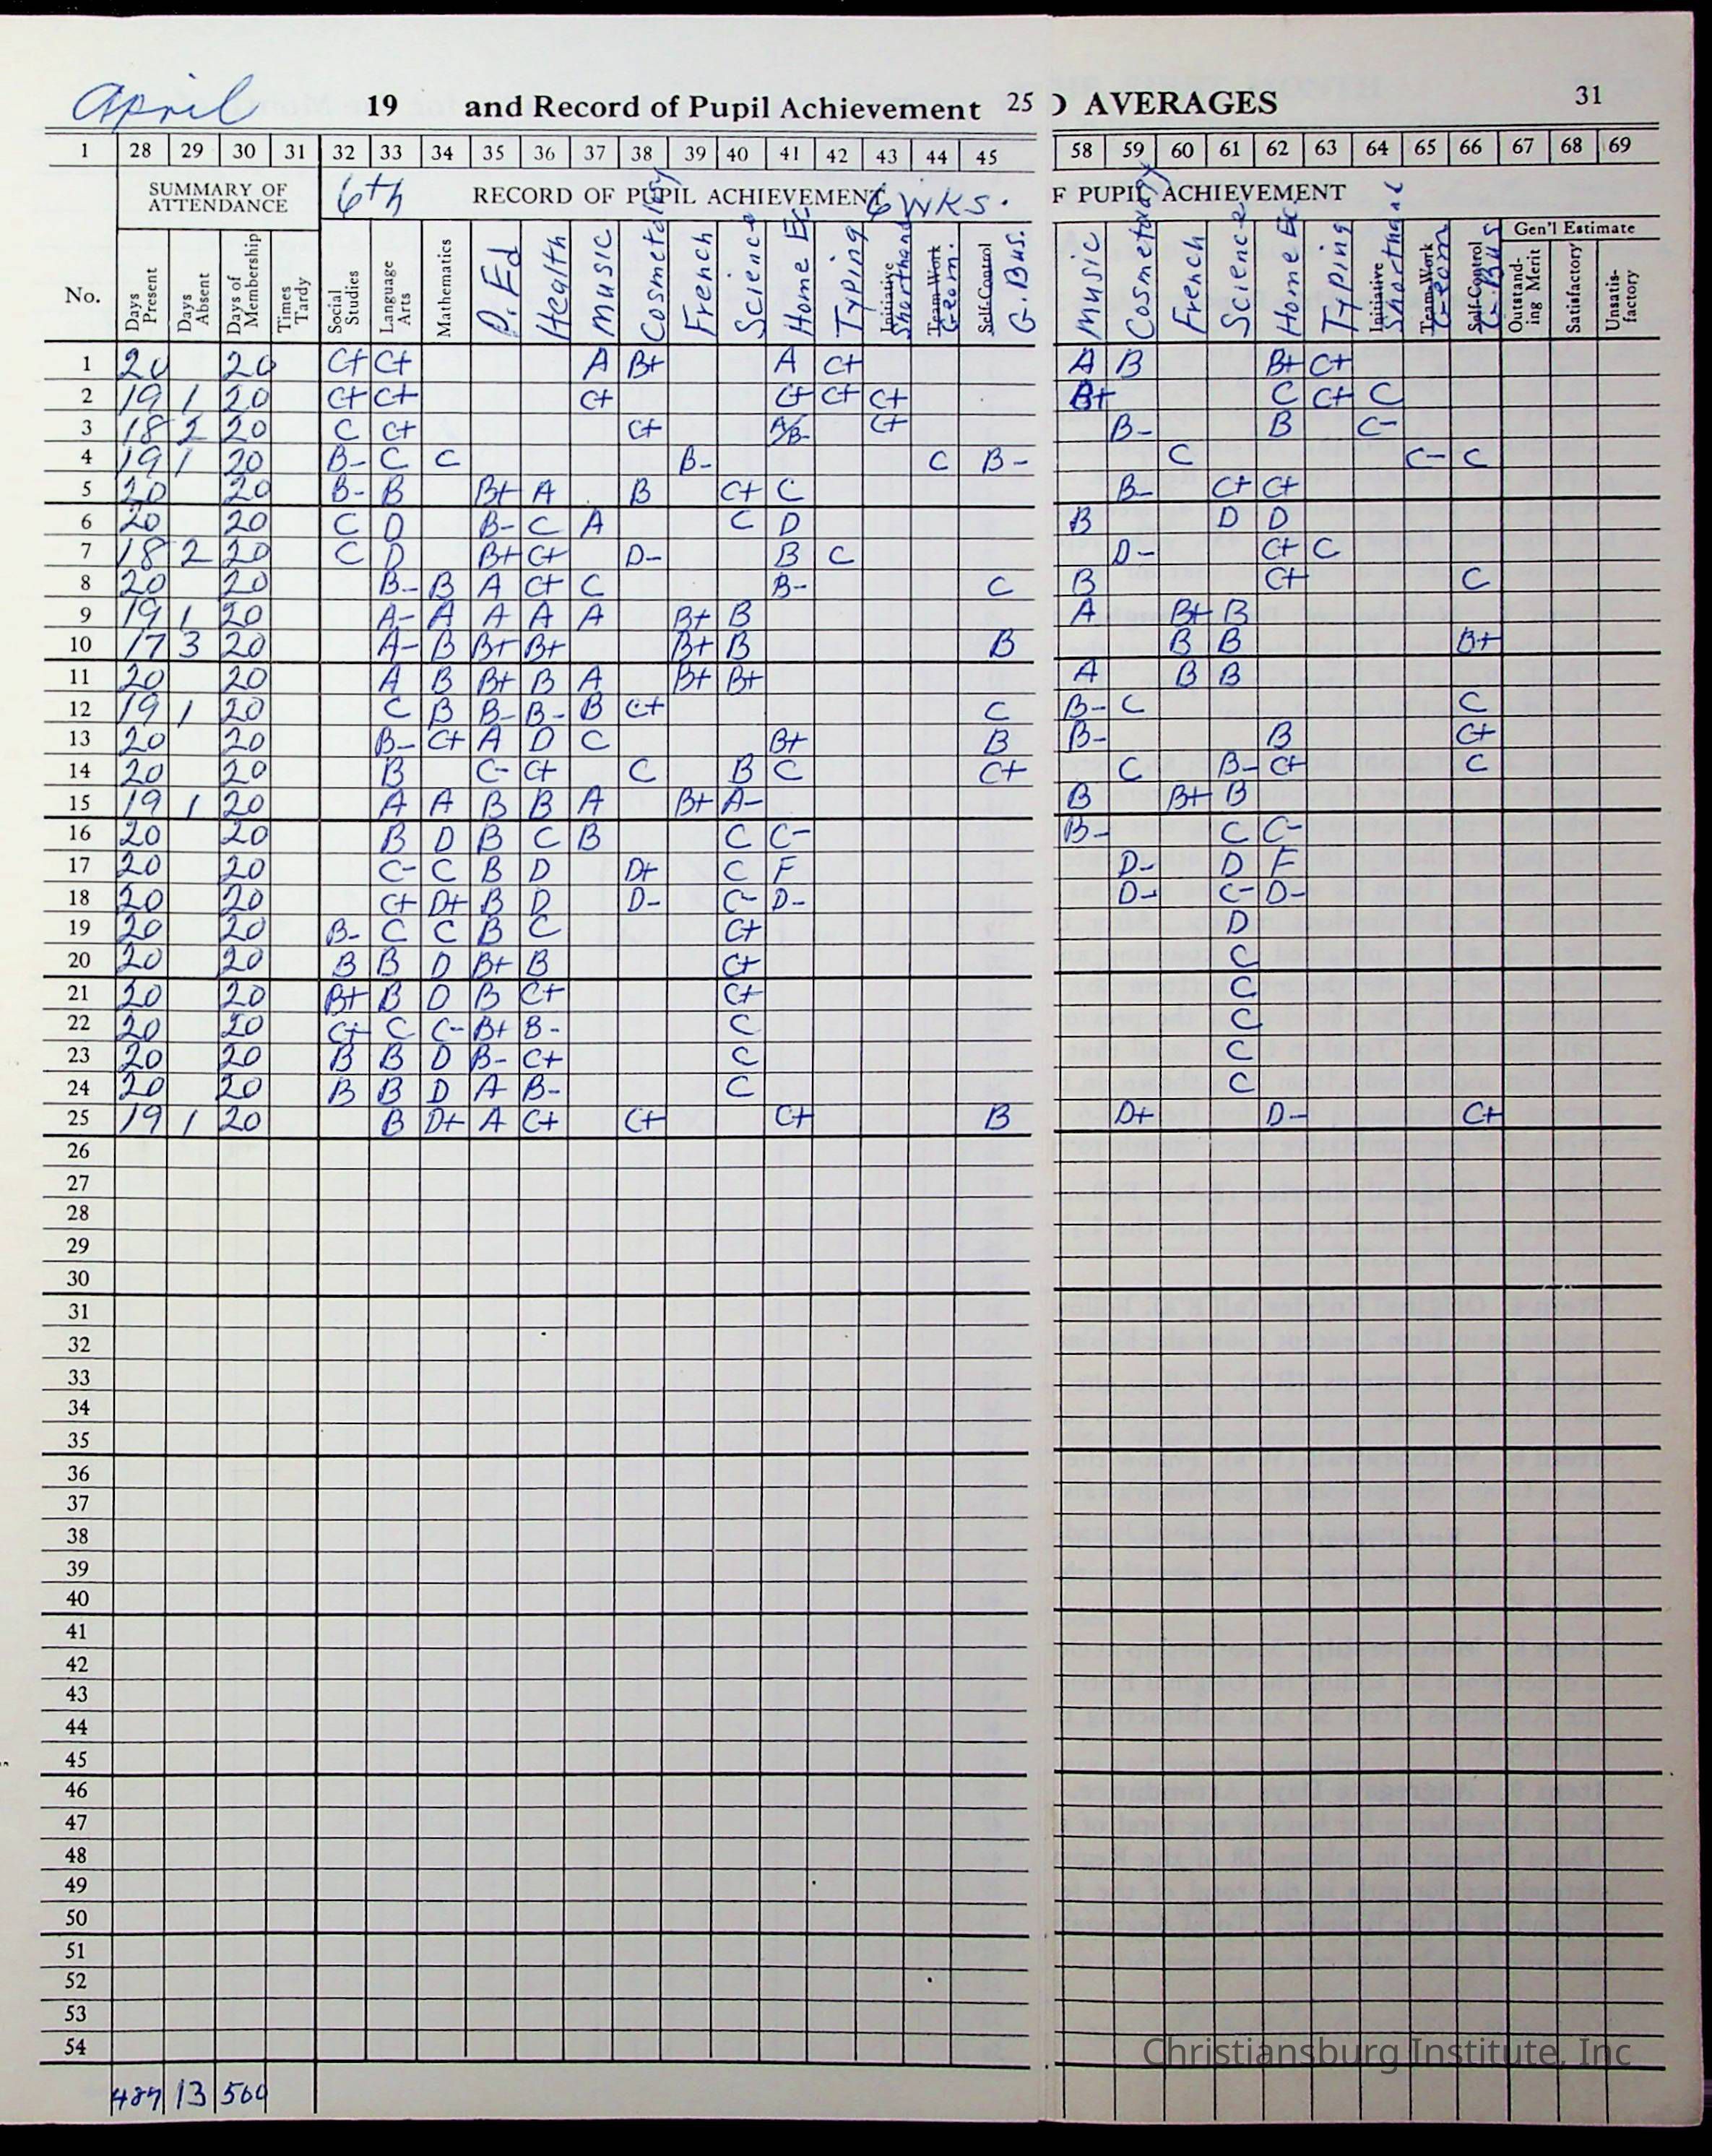 April 19 and Record of Pupil Achievement 25 D AVERAGES 31
1 28 29 30 31 32 33 34 35 36 37 38 39 40 41 42 43 44 45 58 59 60 61 62 63 64 65 66 67 68 69
SUMMARY OF ATTENDANCE 6th RECORD OF PUPIL ACHIEVEMENT 6 WKS. F PUPIL ACHIEVEMENT
Gen'l Estimate
No. Days Present Days Absent Days of Membership Times Tardy Social Studies Language Arts Mathematics P. Ed Health Music Cosmetology French Science Home Ec Typing Initiative Shorthand Team Work Geom. Self-Control G. Bus. Music Cosmetology French Science Home Ec Typing Initiative Shorthand Team Work Geom Self-Control G. Bus Outstanding Merit Satisfactory Unsatisfactory
1 20 20 C+ C+ A B+ A C+ A B B+ C+
2 19 1 20 C+ C+ C+ C+ C+ C+ B+ C C+ C
3 18 2 20 C C+ C+ A/B- C+ B- B C-
4 19 1 20 B- C C B- C B- C C- C
5 20 20 B- B B+ A B C+ C B- C+ C+
6 20 20 C D B- C A C D B D D
7 18 2 20 C D B+ C+ D- B C D- C+ C
8 20 20 B- B A C+ C B- C B C+ C
9 19 1 20 A- A A A A B+ B A B+ B
10 17 3 20 A- B B+ B+ B+ B B B B B+
11 20 20 A B B+ B A B+ B+ A B B
12 19 1 20 C B B- B- B C+ C B- C C
13 20 20 B- C+ A D C B+ B B- B C+
14 20 20 B C- C+ C B C C+ C B- C+ C
15 19 1 20 A A B B A B+ A- B B+ B
16 20 20 B D B C B C C- B- C C-
17 20 20 C- C B D D+ C F D- D F
18 20 20 C+ D+ B D D- C- D- D- C- D-
19 20 20 B- C C B C C+ D
20 20 20 B B D B+ B C+ C
21 20 20 B+ B D B C+ C+ C
22 20 20 C+ C C- B+ B- C C
23 20 20 B B D B- C+ C C
24 20 20 B B D A B- C C
25 19 1 20 B D+ A C+ C+ C+ B D+ D- C+
26
27
28
29
30
31
32
33
34
35
36
37
38
39
40
41
42
43
44
45
46
47
48
49
50
51
52
53
54
487 13 500
Christiansburg Institute, Inc